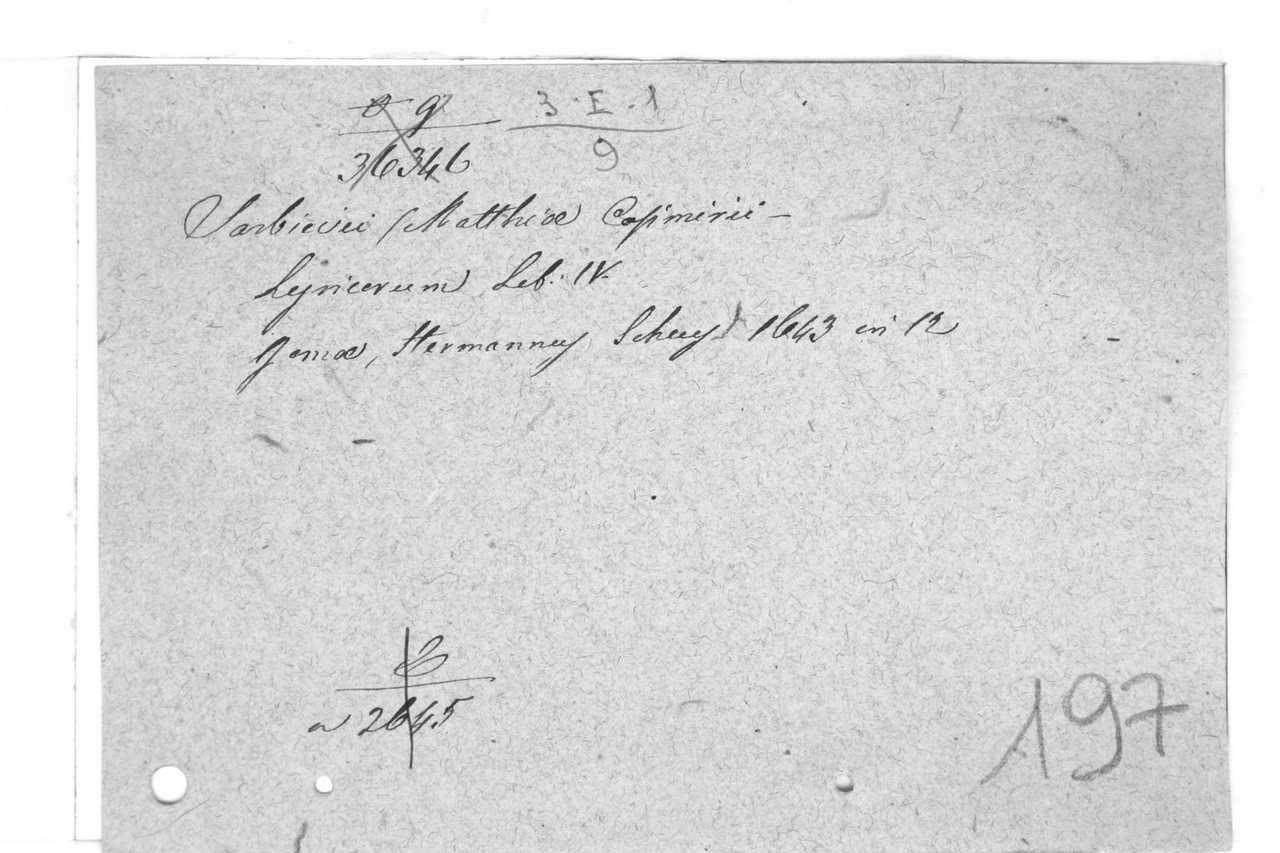 g 3-E-1
36346 9
Sarbievii (Matthiæ Casimirii –
Lyricorum Lib: IV.
Jenæ, Hermannus Scheus 1643 in 12
a 2645
197